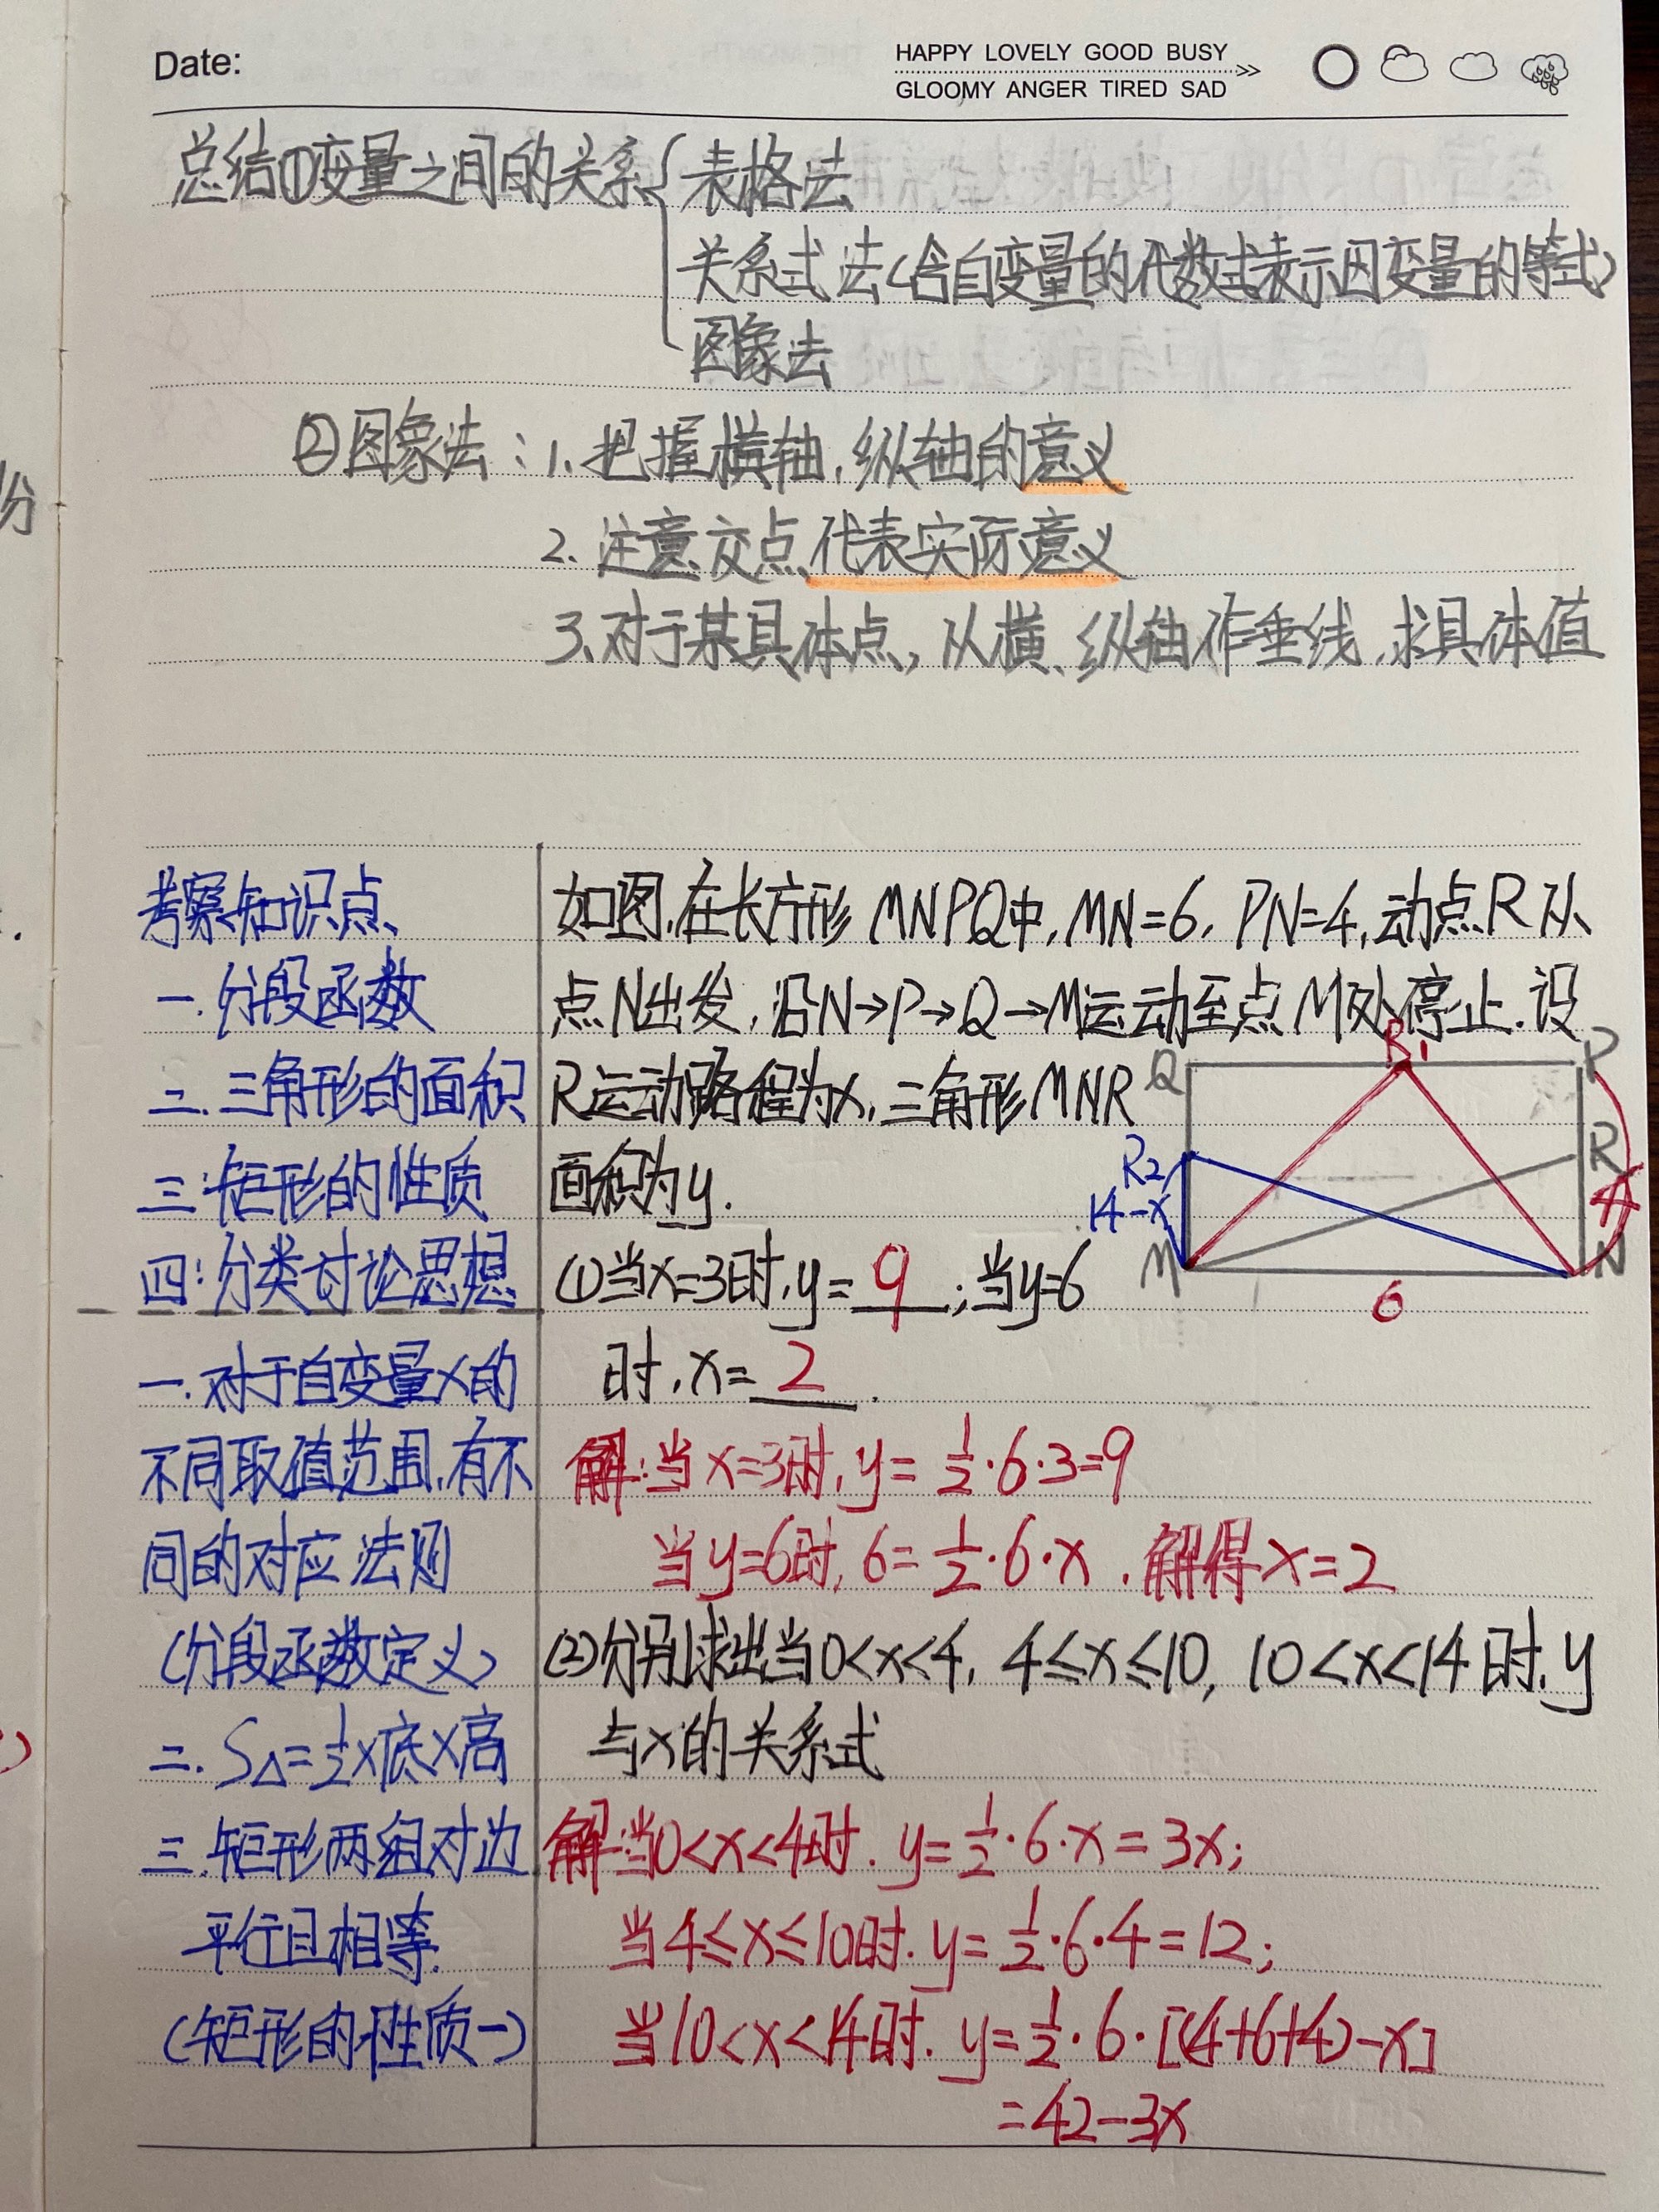 Date:
HAPPY LOVELY GOOD BUSY
GLOOMY ANGER TIRED SAD
总结①变量之间的关系{表格法
关系式法(含自变量的代数式表示因变量的等式)
图象法
②图象法:1.把握横轴,纵轴的意义
2.注意交点代表实际意义
3.对于某具体点,从横、纵轴作垂线,求具体值
考察知识点、
一.分段函数
二.三角形的面积
三.矩形的性质
四.分类讨论思想
一.对于自变量x的
不同取值范围,有不
同的对应法则
(分段函数定义)
二.S△=1/2×底×高
三.矩形两组对边
平行且相等.
(矩形的性质一)
如图,在长方形MNPQ中,MN=6,PN=4,动点R从
点N出发,沿N→P→Q→M运动至点M处停止.设
R运动路程为x,三角形MNR
面积为y.
Q R1 P
R2 R
14-x 4
M N
6
(1)当x=3时,y=9;当y=6
时,x=2.
解:当x=3时,y=1/2·6·3=9
当y=6时,6=1/2·6·x,解得x=2
(2)分别求出当0<x<4,4≤x≤10,10<x<14时,y
与x的关系式
解:当0<x<4时.y=1/2·6·x=3x;
当4≤x≤10时.y=1/2·6·4=12;
当10<x<14时.y=1/2·6·[(4+6+4)-x]
=42-3x